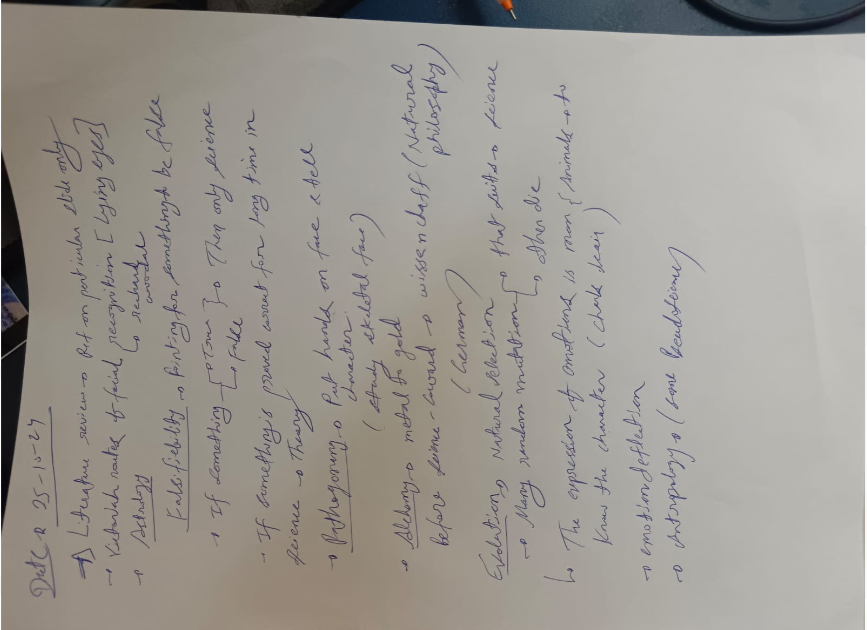 Date → 25-10-24
→ Literature review → Put on particular slide only
→ Victorian roots of facial recognition [Lying eyes]
↳ richard
→ Astrology
Falsifiability → Pointing for something to be false
→ If something [→ True → False] → Then only science
→ If something is proved correct for long time in
science → Theory
→ Pathogonimy → Put hands on face & tell
character.
(study skeletal face)
→ Alchemy → metal to gold
before science - word → wissenchaff (Natural philosophy)
(German)
Evolution → Natural selection
→ Many random mutation [→ that suits → science
→ other die
↳ The expression of emotions is man & animals → to
know the character (Charls)
→ emotion deflection
→ Antropology → (some Pseudoscience)